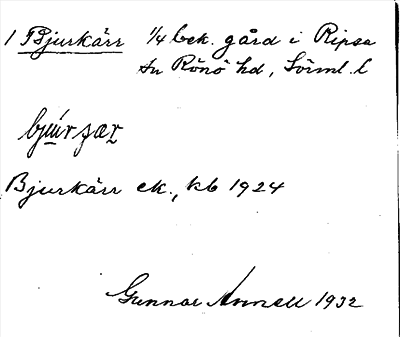 1 Bjurkärr 1/4 bck. gård i Ripsa
sn Rönö hd, Sörml. l
Bjurkärr ek., kb 1924
Gunnar Annell 1932